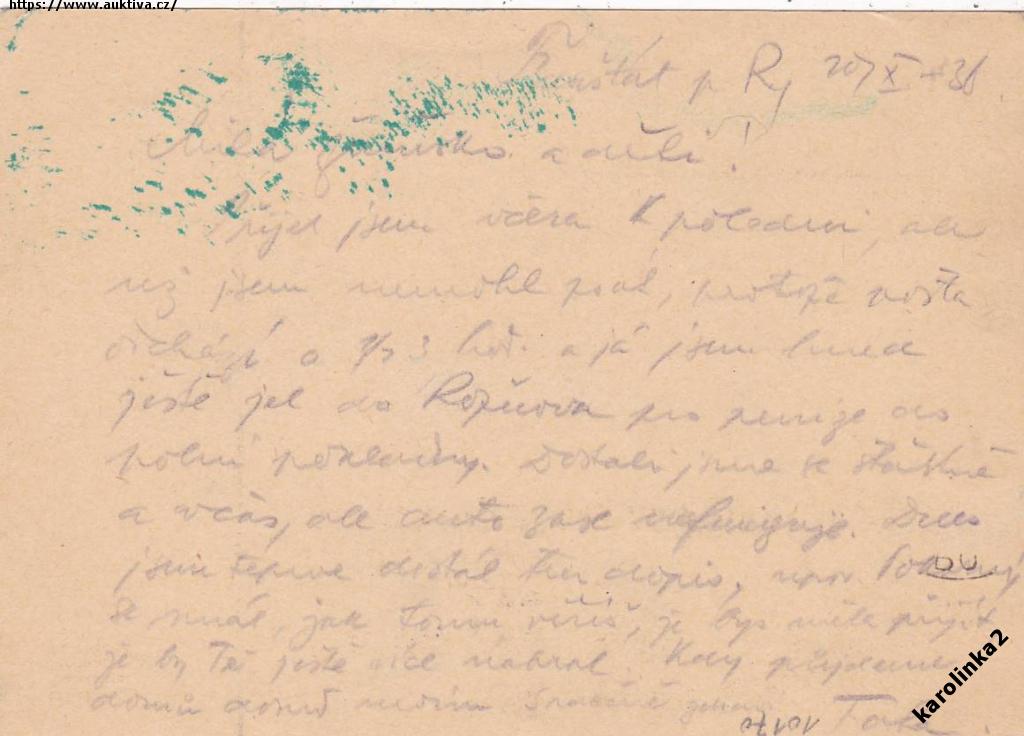 https://www.auktiva.cz/
Frenštát p R, 20/X 38
Milá ženuško a děti!
Přijel jsem včera k poledni, ale
než jsem nemohl psát, protože pošta
odchází o 1/2 3 hod. a já jsem hned
ještě jel do Rožnova pro peníze do
polní pokladny. Dostali jsme se šťastně
a včas, ale auto zase nefunguje. Dnes
jsem teprve dostal ten dopis,
se smál, jak tomu věříš, že bys měla přijít
že by Tě ještě více nabral. Kdy přijdeme
domů dosud nevím Srdečně
Táta.
10170
karolinka2